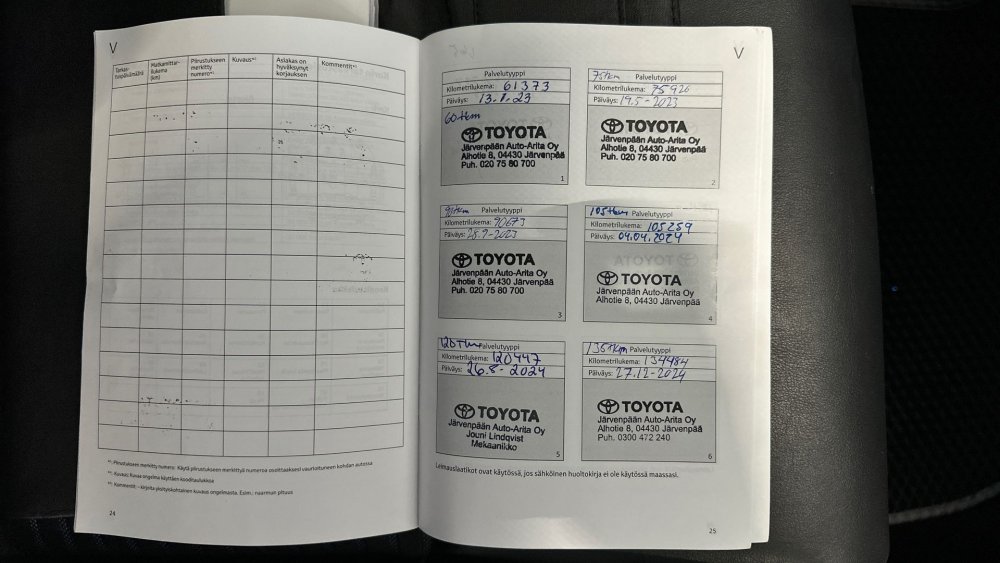 V
Tarkas-
tuspäivämäärä
Matkamittar-
ilukema
(km)
Piirustukseen
merkitty
numero*¹
Kuvaus*²
Asiakas on
hyväksynyt
korjauksen
Kommentit*³
*¹: Piirustukseen merkitty numero: Käytä piirustukseen merkittyä numeroa osoittaaksesi vaurioituneen kohdan autossa
*²: Kuvaus: Kuvaa ongelma käyttäen kooditaulukkoa
*³: Kommentit: – kirjoita yksityiskohtainen kuvaus ongelmasta. Esim.: naarmun pituus
24
V
Palvelutyyppi
Kilometrilukema: 61373
Päiväys: 13.1.23
60tkm
TOYOTA
Järvenpään Auto-Arita Oy
Alhotie 8, 04430 Järvenpää
Puh. 020 75 80 700
1
75tkm Palvelutyyppi
Kilometrilukema: 75926
Päiväys: 19.5-2023
TOYOTA
Järvenpään Auto-Arita Oy
Alhotie 8, 04430 Järvenpää
Puh. 020 75 80 700
2
90tkm Palvelutyyppi
Kilometrilukema: 90673
Päiväys: 25.9-2023
TOYOTA
Järvenpään Auto-Arita Oy
Alhotie 8, 04430 Järvenpää
Puh. 020 75 80 700
3
105tkm Palvelutyyppi
Kilometrilukema: 105259
Päiväys: 04.04.2024
TOYOTA
Järvenpään Auto-Arita Oy
Alhotie 8, 04430 Järvenpää
4
120Tkm Palvelutyyppi
Kilometrilukema: 120447
Päiväys: 26.8-2024
TOYOTA
Järvenpään Auto-Arita Oy
Jouni Lindqvist
Mekaanikko
5
135tkm Palvelutyyppi
Kilometrilukema: 134484
Päiväys: 27.12-2024
TOYOTA
Järvenpään Auto-Arita Oy
Alhotie 8, 04430 Järvenpää
Puh. 0300 472 240
6
Leimauslaatikot ovat käytössä, jos sähköinen huoltokirja ei ole käytössä maassasi.
25